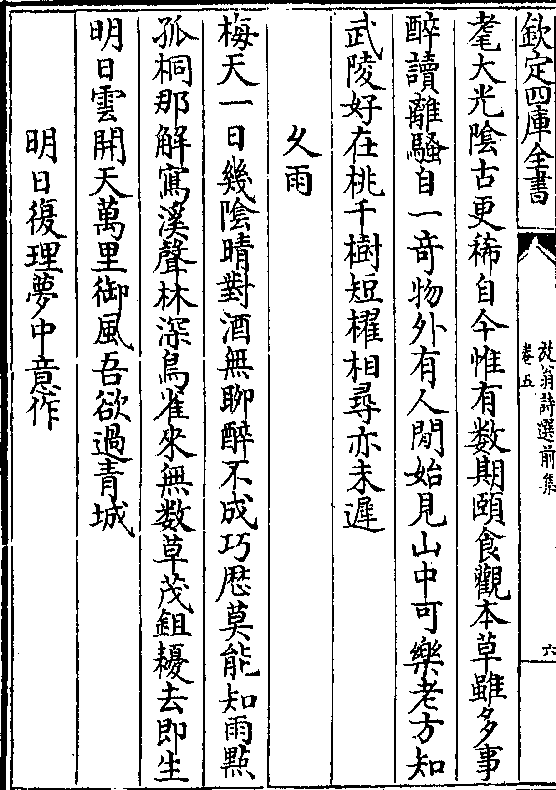 欽定四庫全書
放翁詩選前集
卷五
六
耄大光陰古更稀自今惟有数期頤食觀本草雖多事
醉讀離騷自一竒物外有人閒始見山中可樂老方知
武陵好在桃千樹短櫂相尋亦未遲
久雨
梅天一日幾陰晴對酒無聊醉不成巧厯莫能知雨㸃
孤桐那解寫溪聲林深鳥雀來無数草茂鉏耰去即生
明日雲開天萬里御風吾欲過青城
明日復理夢中意作